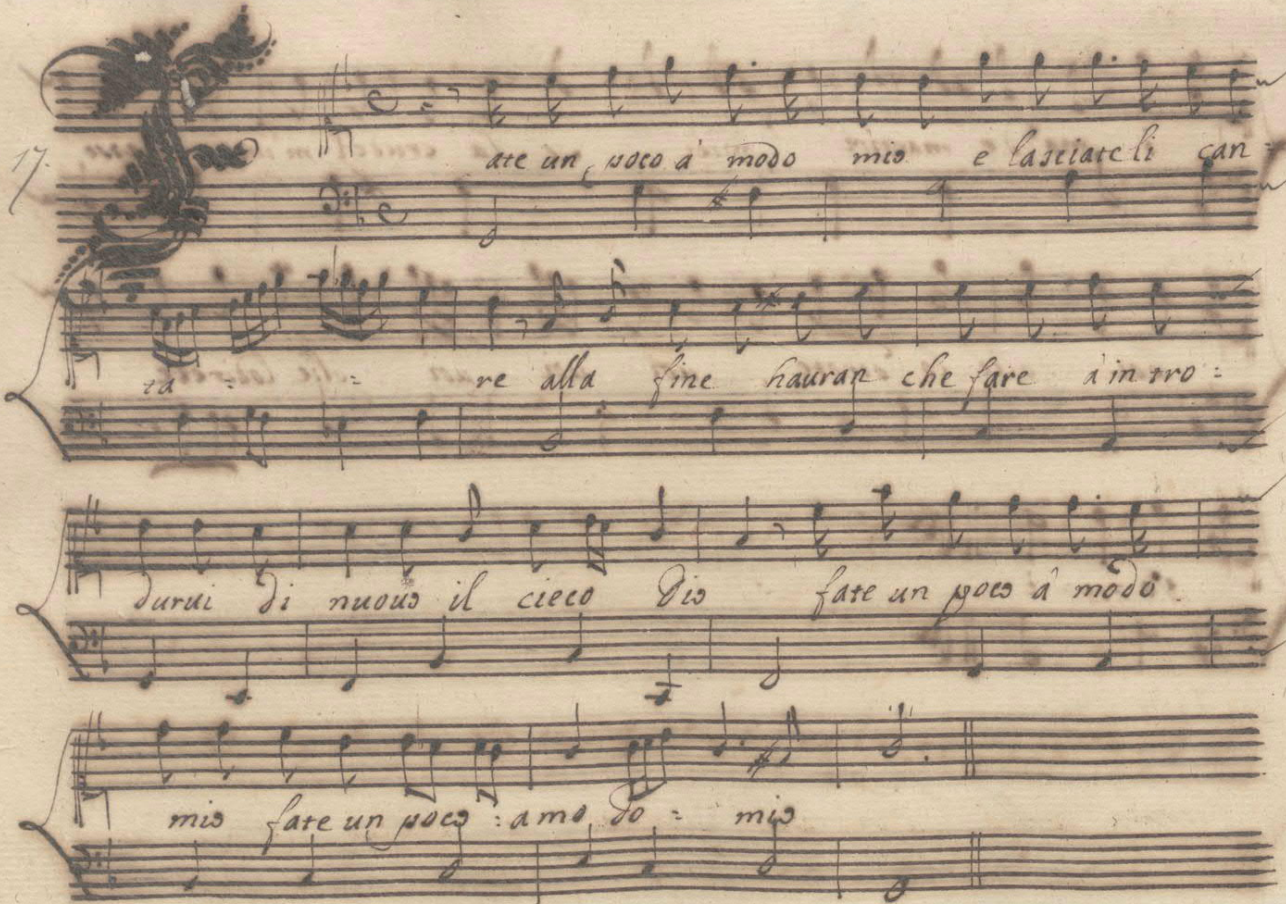 17.
Fate un poco à modo mio e lasciateli can=
ta = = re alla fine hauran che fare à intro=
durui di nuouo il cieco Dio fate un poco à modo
mio fate un poco : a mo do = mio